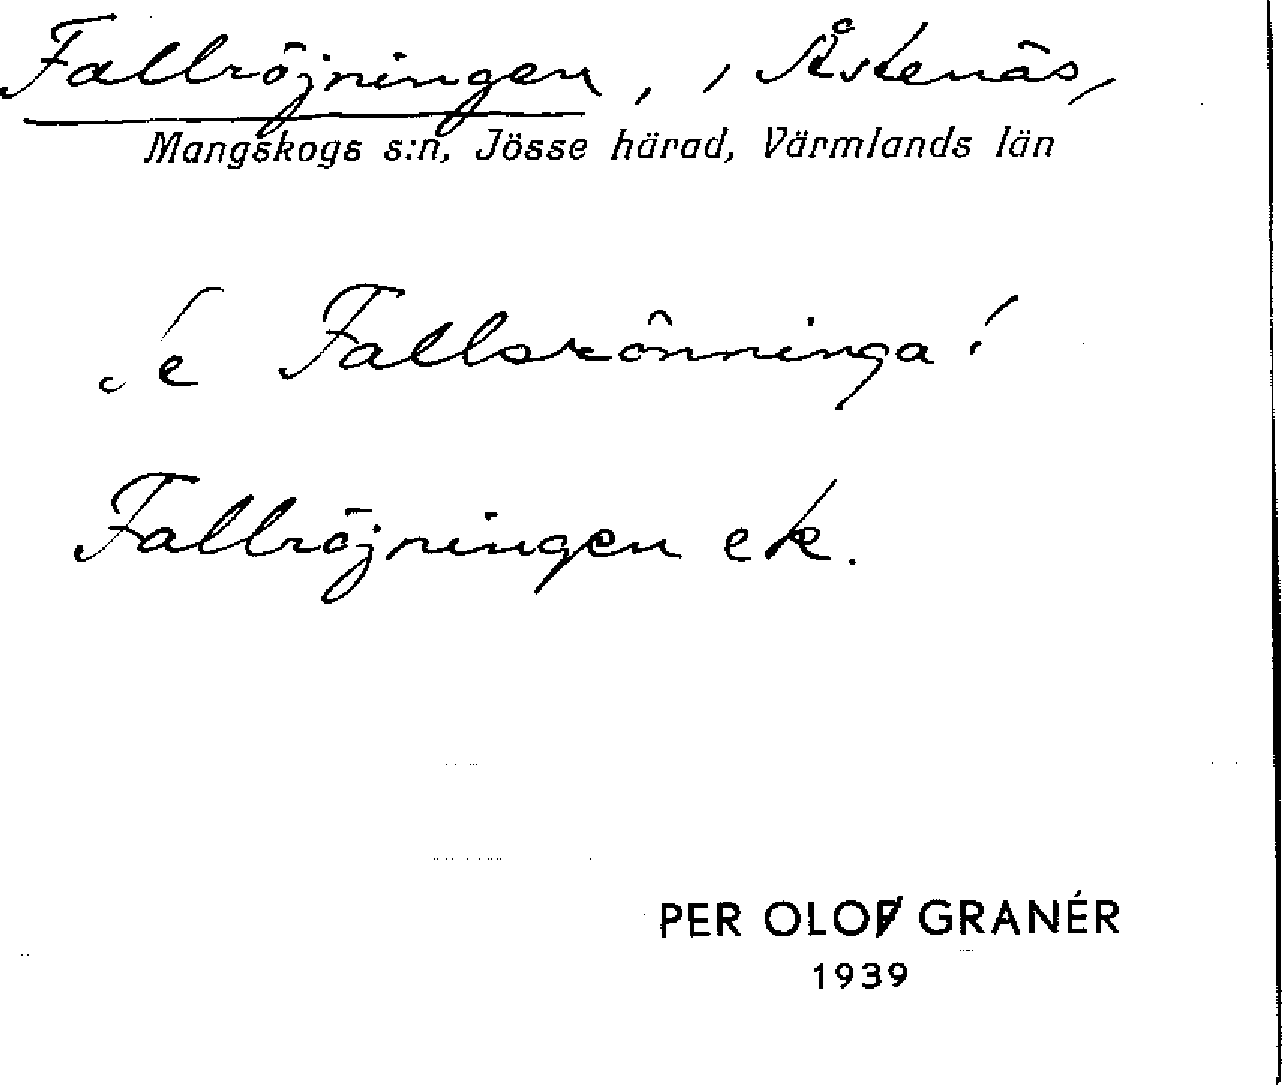 Fallröjningen, , Åstenäs,
Mangskogs s:n, Jösse härad, Värmlands län
Fallröjningen ek.
PER OLOF GRANÉR
1939